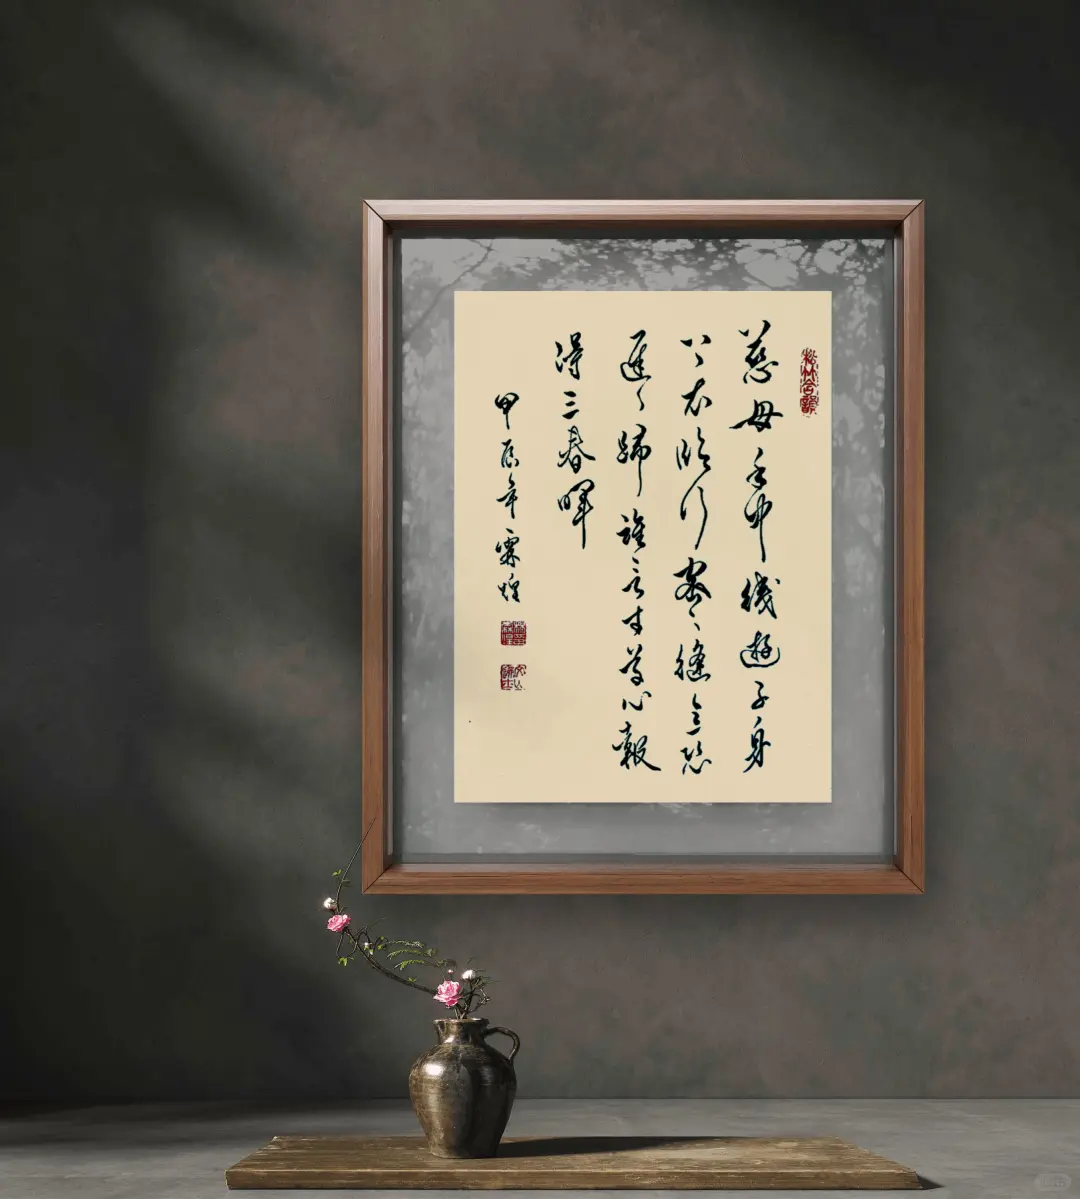 慈母手中綫遊子身
上衣臨行密〻縫意恐
遲〻歸誰言寸草心報
得三春暉
甲辰年霖煌